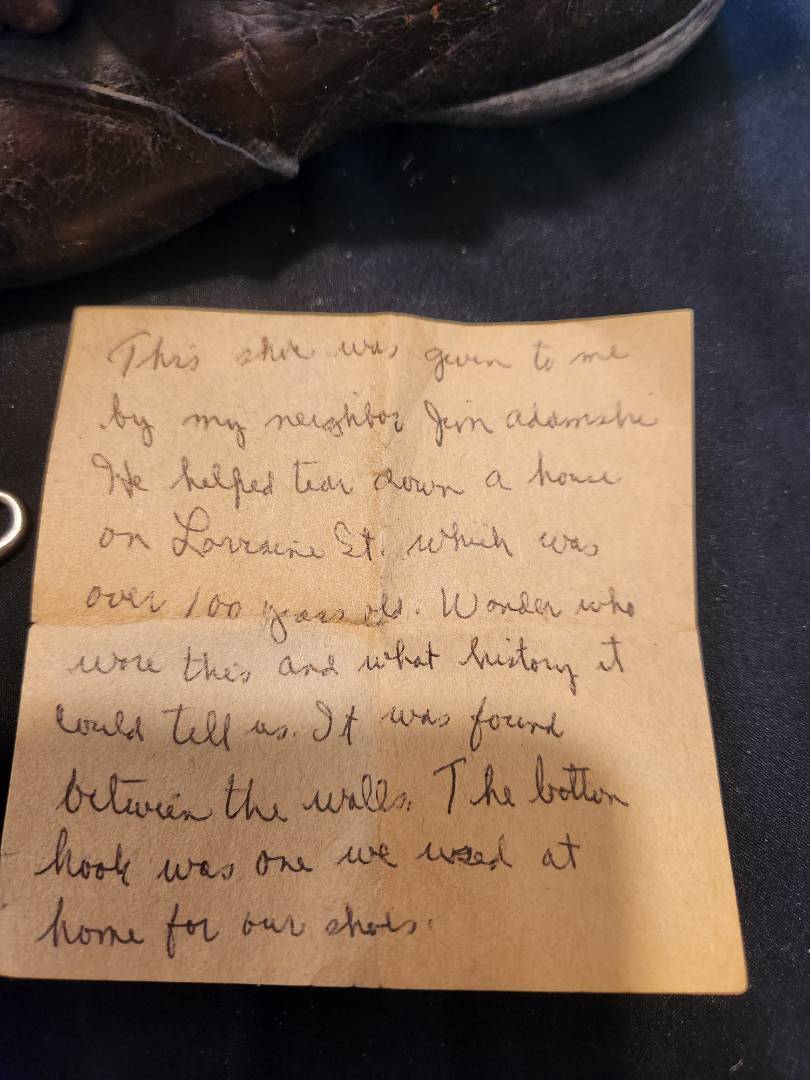 This shoe was given to me
by my neighbor Jim Adamski
He helped tear down a house
on Lorraine St. which was
over 100 years old. Wonder who
wore this and what history it
could tell us. It was found
between the walls. The button
hook was one we used at
home for our shoes.